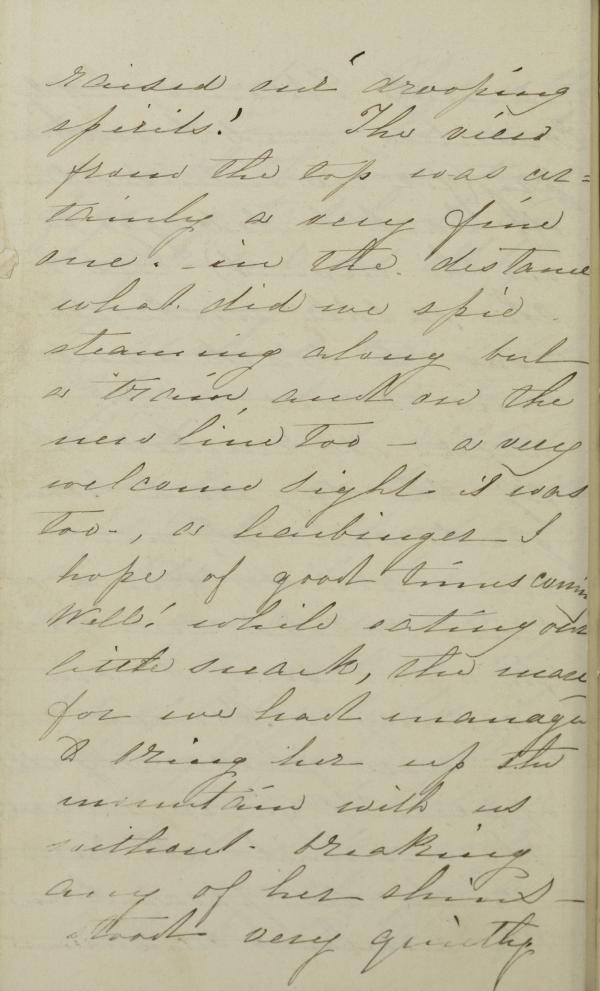 raised our drooping
spirits! The view
from the top was cer=
tainly a very fine
one. - in the distance
what did we spie
steaming along but
a train and on the
new line too - a very
welcome sight it was
too -, a harbinger I
hope of good times comin
Well! while eating our
little snack, the mare
for we had manage
to bring her up the
mountain with us
without breaking
any of her shins -
stood very quietly